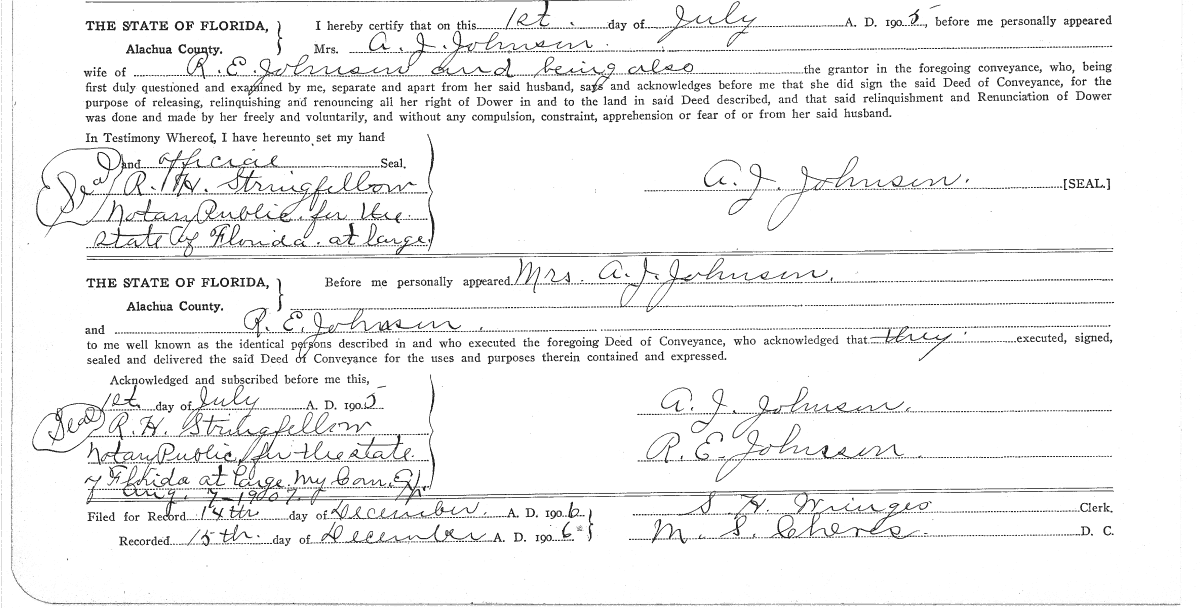 THE STATE OF FLORIDA, I hereby certify that on this 1st. day of July A. D. 1905, before me personally appeared
Alachua County. Mrs. A. J. Johnson.
wife of R. E. Johnson and being also the grantor in the foregoing conveyance, who, being
first duly questioned and examined by me, separate and apart from her said husband, says and acknowledges before me that she did sign the said Deed of Conveyance, for the
purpose of releasing, relinquishing and renouncing all her right of Dower in and to the land in said Deed described, and that said relinquishment and Renunciation of Dower
was done and made by her freely and voluntarily, and without any compulsion, constraint, apprehension or fear of or from her said husband.
In Testimony Whereof, I have hereunto set my hand
and official Seal.
Seal R. H. Stringfellow A. J. Johnson. [SEAL.]
Notary Public for the
State of Florida at large.
THE STATE OF FLORIDA, Before me personally appeared Mrs. A. J. Johnson.
Alachua County.
and R. E. Johnson.
to me well known as the identical persons described in and who executed the foregoing Deed of Conveyance, who acknowledged that they executed, signed,
sealed and delivered the said Deed of Conveyance for the uses and purposes therein contained and expressed.
Acknowledged and subscribed before me this,
1st. day of July A. D. 1905 A. J. Johnson.
Seal R. H. Stringfellow
Notary Public, for the state R. E. Johnson.
of Florida at large. My Com. Ex.
Aug. 7-1907.
Filed for Record 14th day of December. A. D. 1906 S. H. Clerk.
Recorded 15th. day of December A. D. 1906 M. S. D. C.